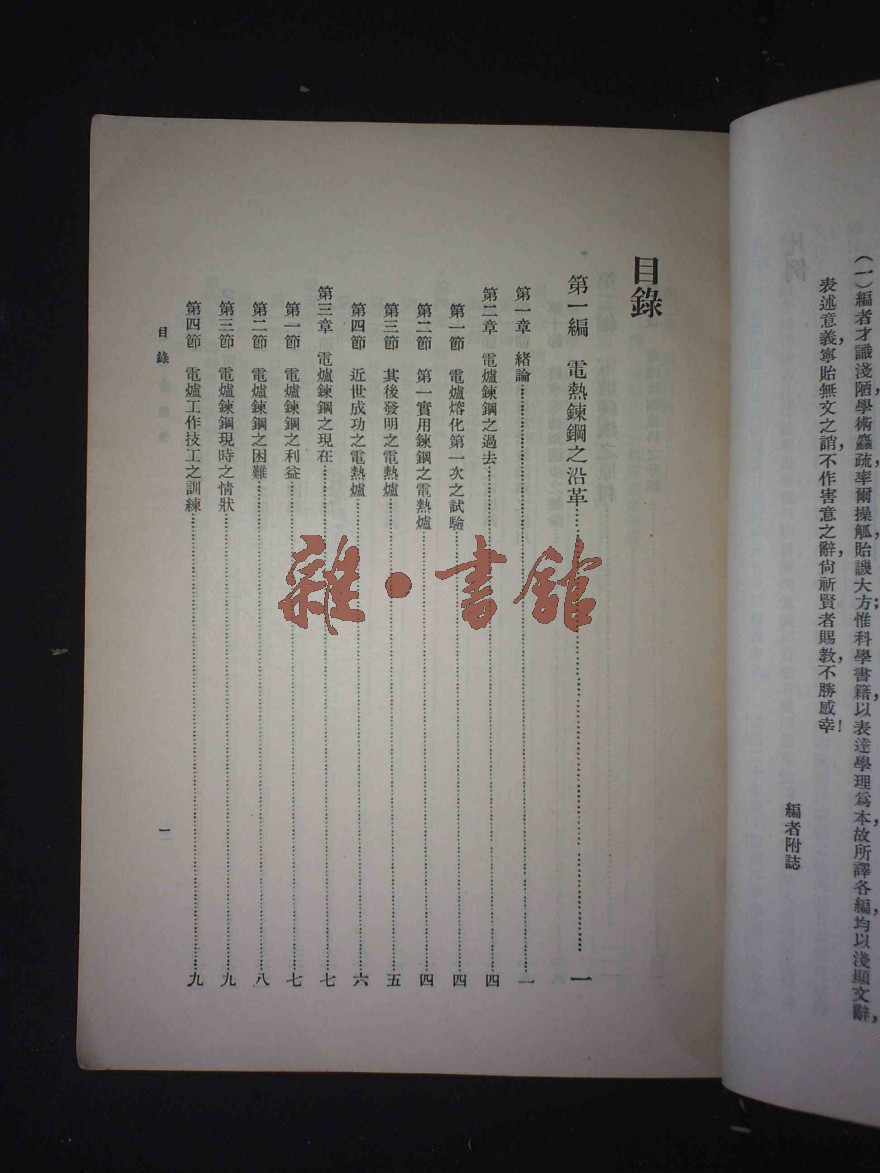 (一)編者才識淺陋,學術麤疏,率爾操觚,貽譏大方;惟科學書籍,以表達學理爲本,故所譯各編,均以淺顯文辭,
表述意義,寧貽無文之誚,不作害意之辭,尙祈賢者賜教,不勝感幸!
編者附誌
目錄
第一編 電熱鍊鋼之沿革……一
第一章 緒論……一
第二章 電爐鍊鋼之過去……四
第一節 電爐熔化第一次之試驗……四
第二節 第一實用鍊鋼之電熱爐……四
第三節 其後發明之電熱爐……五
第四節 近世成功之電熱爐……六
第三章 電爐鍊鋼之現在……七
第一節 電爐鍊鋼之利益……七
第二節 電爐鍊鋼之困難……八
第三節 電爐鍊鋼現時之情狀……九
第四節 電爐工作技工之訓練……九
目錄
一
雜·書館